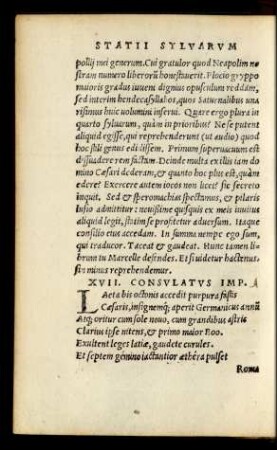 STATII SYLVARVM
pollij mei generum. Cui gratulor quod Neapolim no
stram numero liberorũ honestauerit. Flocio gryppo
maioris gradus iuueni dignius opusculum reddam,
sed interim hendecasyllabos, quos Saturnalibus una
risimus huic uolumini inserui. Quare ergo plura in
quarto syluarum, quàm in prioribus? Ne se putent
aliquid egisse, qui reprehenderunt (ut audio) quod
hoc stili genus edidissem. Primum superuacuum est
dissuadere rem factam. Deinde multa ex illis iam do
mino Cæsari dederam, & quanto hoc plus est, quàm
edere? Exercere autem iocos non licet? sic secreto
inquit. Sed & speromachias spectamus, & pilaris
lusio admittitur: nouissime quisquis ex meis inuitus
aliquid legit, statim se profitetur aduersum. Itaque
consilio eius accedam. In summa nempe ego sum,
qui traducor. Taceat & gaudeat. Hunc tamen li
brum tu Marcelle defendes. Et si uidetur hactenus.
sin minus reprehendemur.
XVII. CONSVLATVS IMP.
LAeta bis octonis accedit purpura fastis
Cæsaris, insignemq; aperit Germanicus annũ
Atq; oritur cum sole nouo, cum grandibus astris
Clarius ipse nitens, & primo maior Eoo.
Exultent leges latiæ, gaudete curules.
Et septem gemino iactantior æthera pulset
Roma